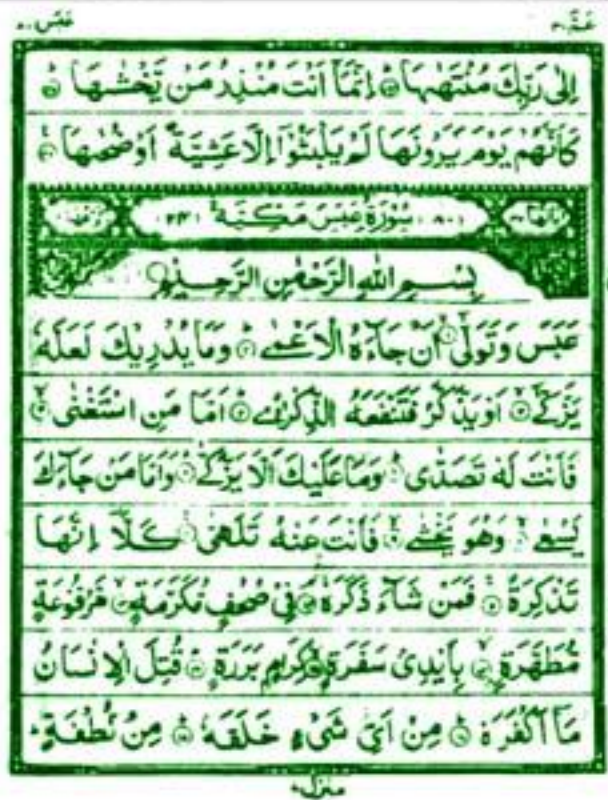 عَمَّ ٣٠
عَبَسَ ٨٠
اِلٰى رَبِّكَ مُنْتَهٰىهَا ؕ﴿۴۴﴾ اِنَّمَاۤ اَنْتَ مُنْذِرُ مَنْ يَّخْشٰىهَا ؕ﴿۴۵﴾
كَاَنَّهُمْ يَوْمَ يَرَوْنَهَا لَمْ يَلْبَثُوْۤا اِلَّا عَشِيَّةً اَوْ ضُحٰىهَا ﴿۴۶﴾
(٨٠) سُوْرَةُ عَبَسَ مَكِّيَّةٌ (٢٤)
بِسْمِ اللّٰهِ الرَّحْمٰنِ الرَّحِيْمِ
عَبَسَ وَتَوَلّٰۤى ﴿۱﴾ اَنْ جَآءَهُ الْاَعْمٰى ﴿۲﴾ وَمَا يُدْرِيْكَ لَعَلَّهٗ
يَزَّكّٰۤى ﴿۳﴾ اَوْ يَذَّكَّرُ فَتَنْفَعَهُ الذِّكْرٰى ﴿۴﴾ اَمَّا مَنِ اسْتَغْنٰى ﴿۵﴾
فَاَنْتَ لَهٗ تَصَدّٰى ﴿۶﴾ وَمَا عَلَيْكَ اَلَّا يَزَّكّٰى ﴿۷﴾ وَاَمَّا مَنْ جَآءَكَ
يَسْعٰى ﴿۸﴾ وَهُوَ يَخْشٰى ﴿۹﴾ فَاَنْتَ عَنْهُ تَلَهّٰى ﴿۱۰﴾ كَلَّاۤ اِنَّهَا
تَذْكِرَةٌ ﴿۱۱﴾ فَمَنْ شَآءَ ذَكَرَهٗ ﴿۱۲﴾ فِيْ صُحُفٍ مُّكَرَّمَةٍ ﴿۱۳﴾ مَّرْفُوْعَةٍ
مُّطَهَّرَةٍ ﴿۱۴﴾ بِاَيْدِيْ سَفَرَةٍ ﴿۱۵﴾ كِرَامٍ بَرَرَةٍ ﴿۱۶﴾ قُتِلَ الْاِنْسَانُ
مَاۤ اَكْفَرَهٗ ﴿۱۷﴾ مِنْ اَيِّ شَيْءٍ خَلَقَهٗ ﴿۱۸﴾ مِنْ نُّطْفَةٍ
منزل